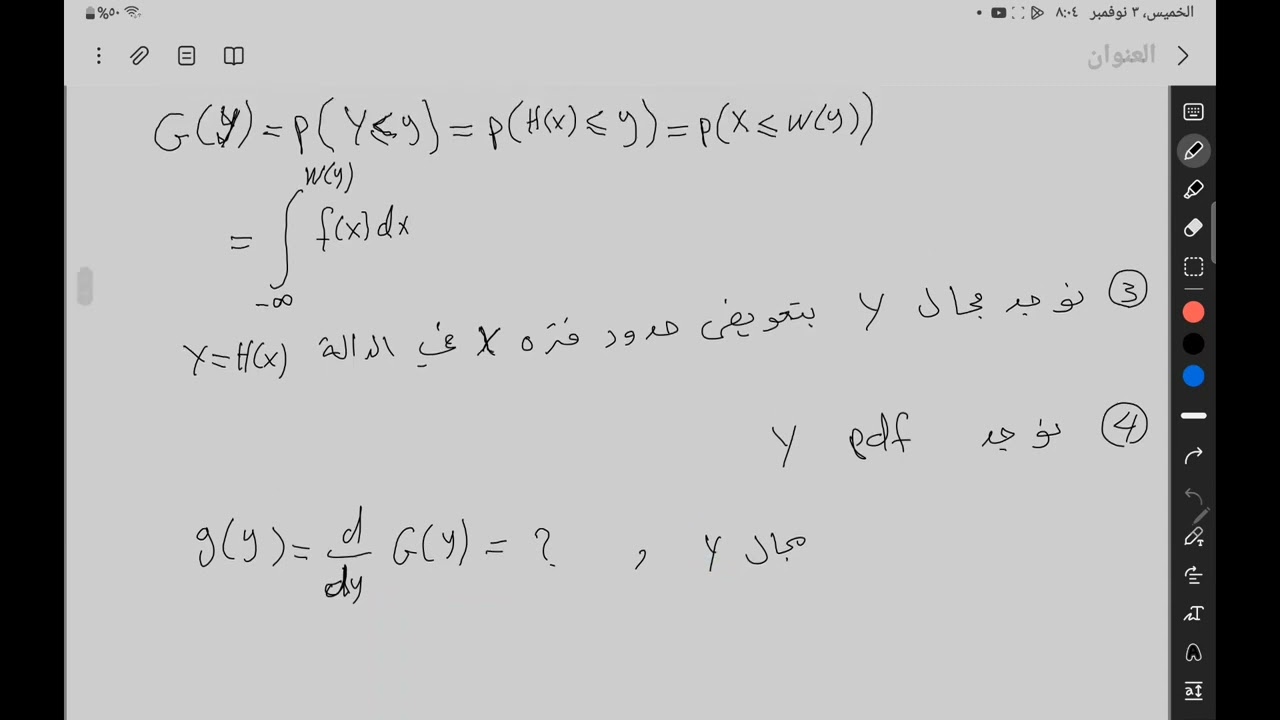 الخميس، ٣ نوفمبر ٨:٠٤
٥٠%
العنوان
G(y) = p(Y ≤ y) = p(H(x) ≤ y) = p(X ≤ W(y))
= ∫_{-∞}^{W(y)} f(x) dx
③ نوجد مجال Y بتعويض حدود فتره X في الدالة Y=H(x)
④ نوجد pdf Y
g(y) = d/dy G(y) = ? , مجال Y